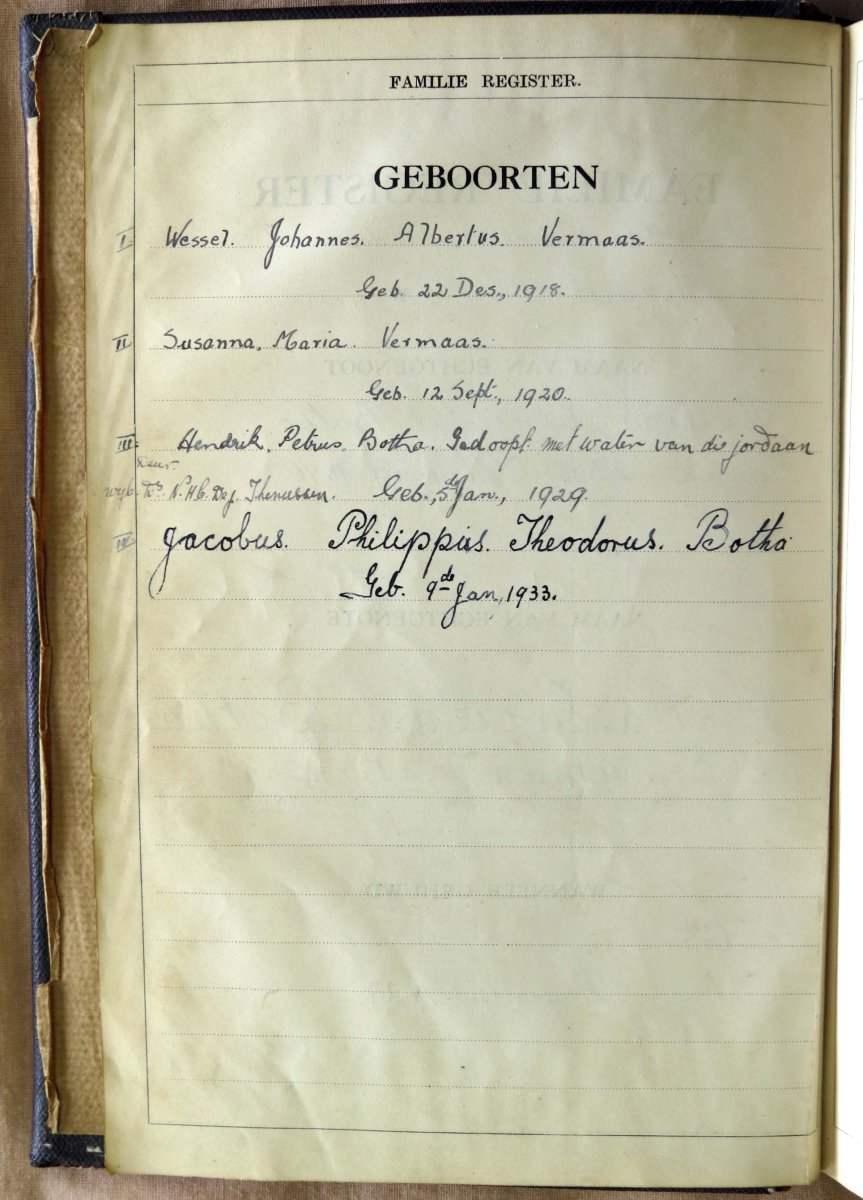 FAMILIE REGISTER.
GEBOORTEN
I Wessel. Johannes. Albertus. Vermaas.
Geb. 22 Des., 1918.
II Susanna, Maria. Vermaas.
Geb. 12 Sept., 1920.
III. Hendrik, Petrus. Botha. Gedoopt met water van die jordaan
deur
wyle Ds N.H.C. De J. Geb., 5de Jan., 1929.
IV Jacobus. Philippus. Theodorus. Botha
Geb. 9de Jan, 1933.